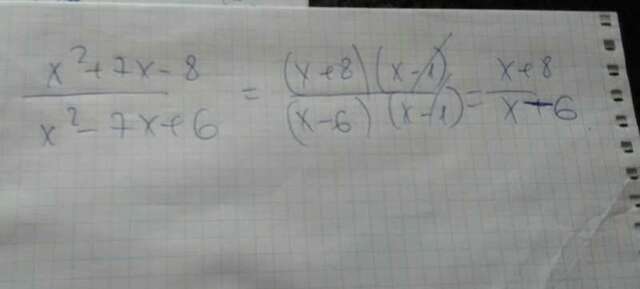 x²+7x-8 / x²-7x+6 = (x+8)(x-1) / (x-6)(x-1) = x+8 / x-6